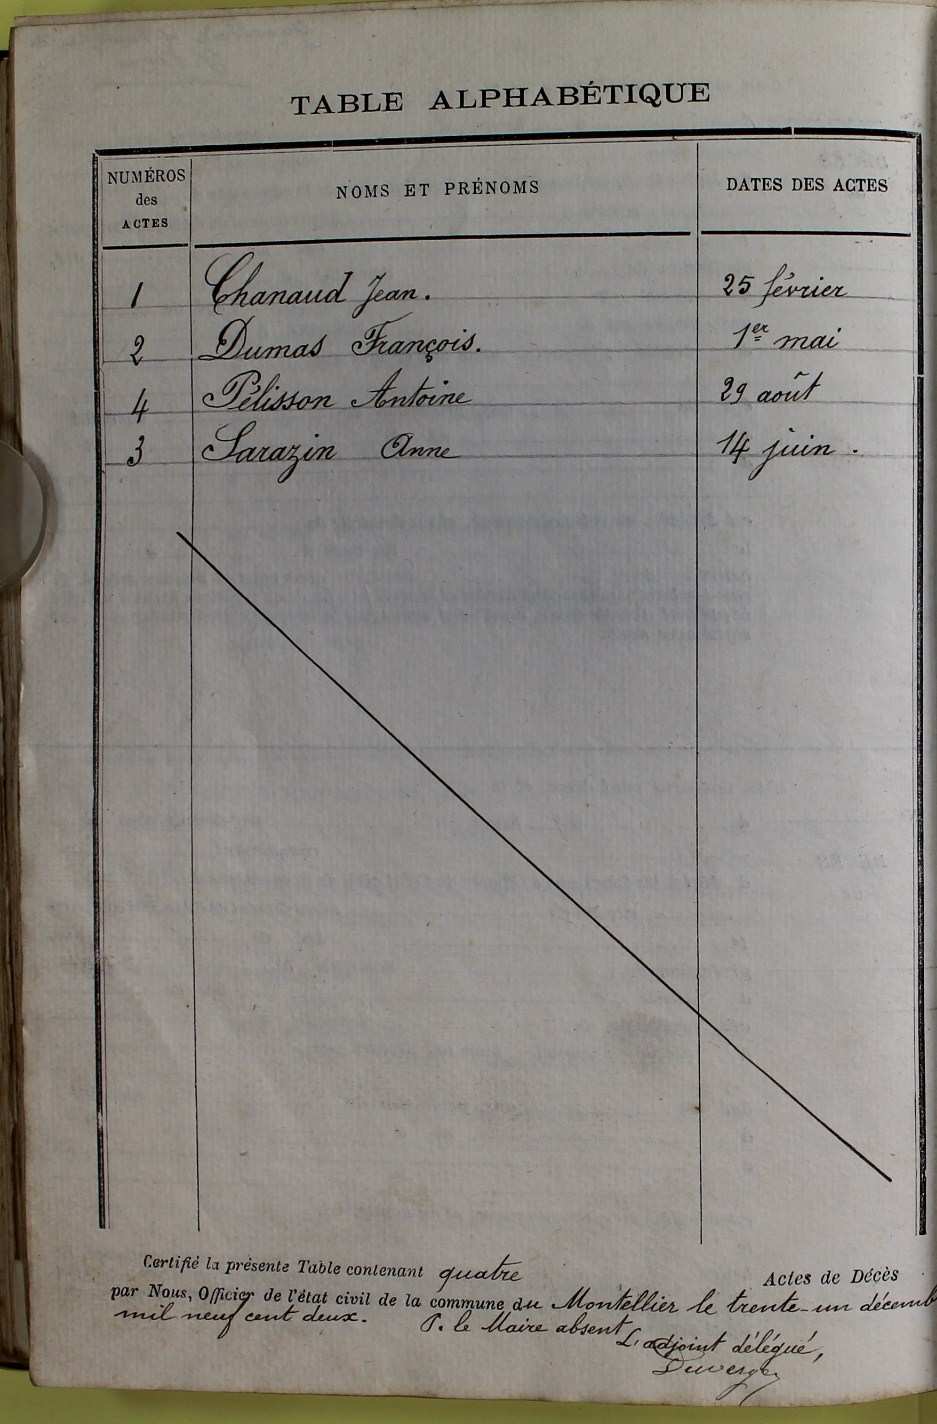 TABLE ALPHABÉTIQUE
NUMÉROS des ACTES NOMS ET PRÉNOMS DATES DES ACTES
1 Chanaud Jean. 25 février
2 Dumas François. 1er mai
4 Pélisson Antoine 29 août
3 Sarazin Anne 14 juin.
Certifié la présente Table contenant quatre Actes de Décès
par Nous, Officier de l'état civil de la commune du Montellier le trente-un décemb
mil neuf cent deux. P. le Maire absent
L'adjoint délégué,